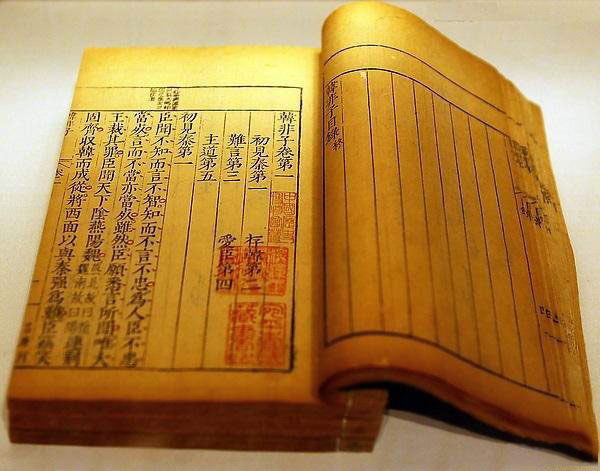 韓非子目錄終
韓非子卷第一
初見秦第一 存韓第二
難言第三 愛臣第四
主道第五
初見秦第一
臣聞不知而言不智知而不言不忠為人臣不忠
當死言而不當亦當死雖然臣願悉言所聞唯大
王裁其罪臣聞天下陰燕陽魏故曰陰魏南故曰陽連荊
固齊收韓而成從將西面以與秦强為難臣竊笑
韓非子 卷一